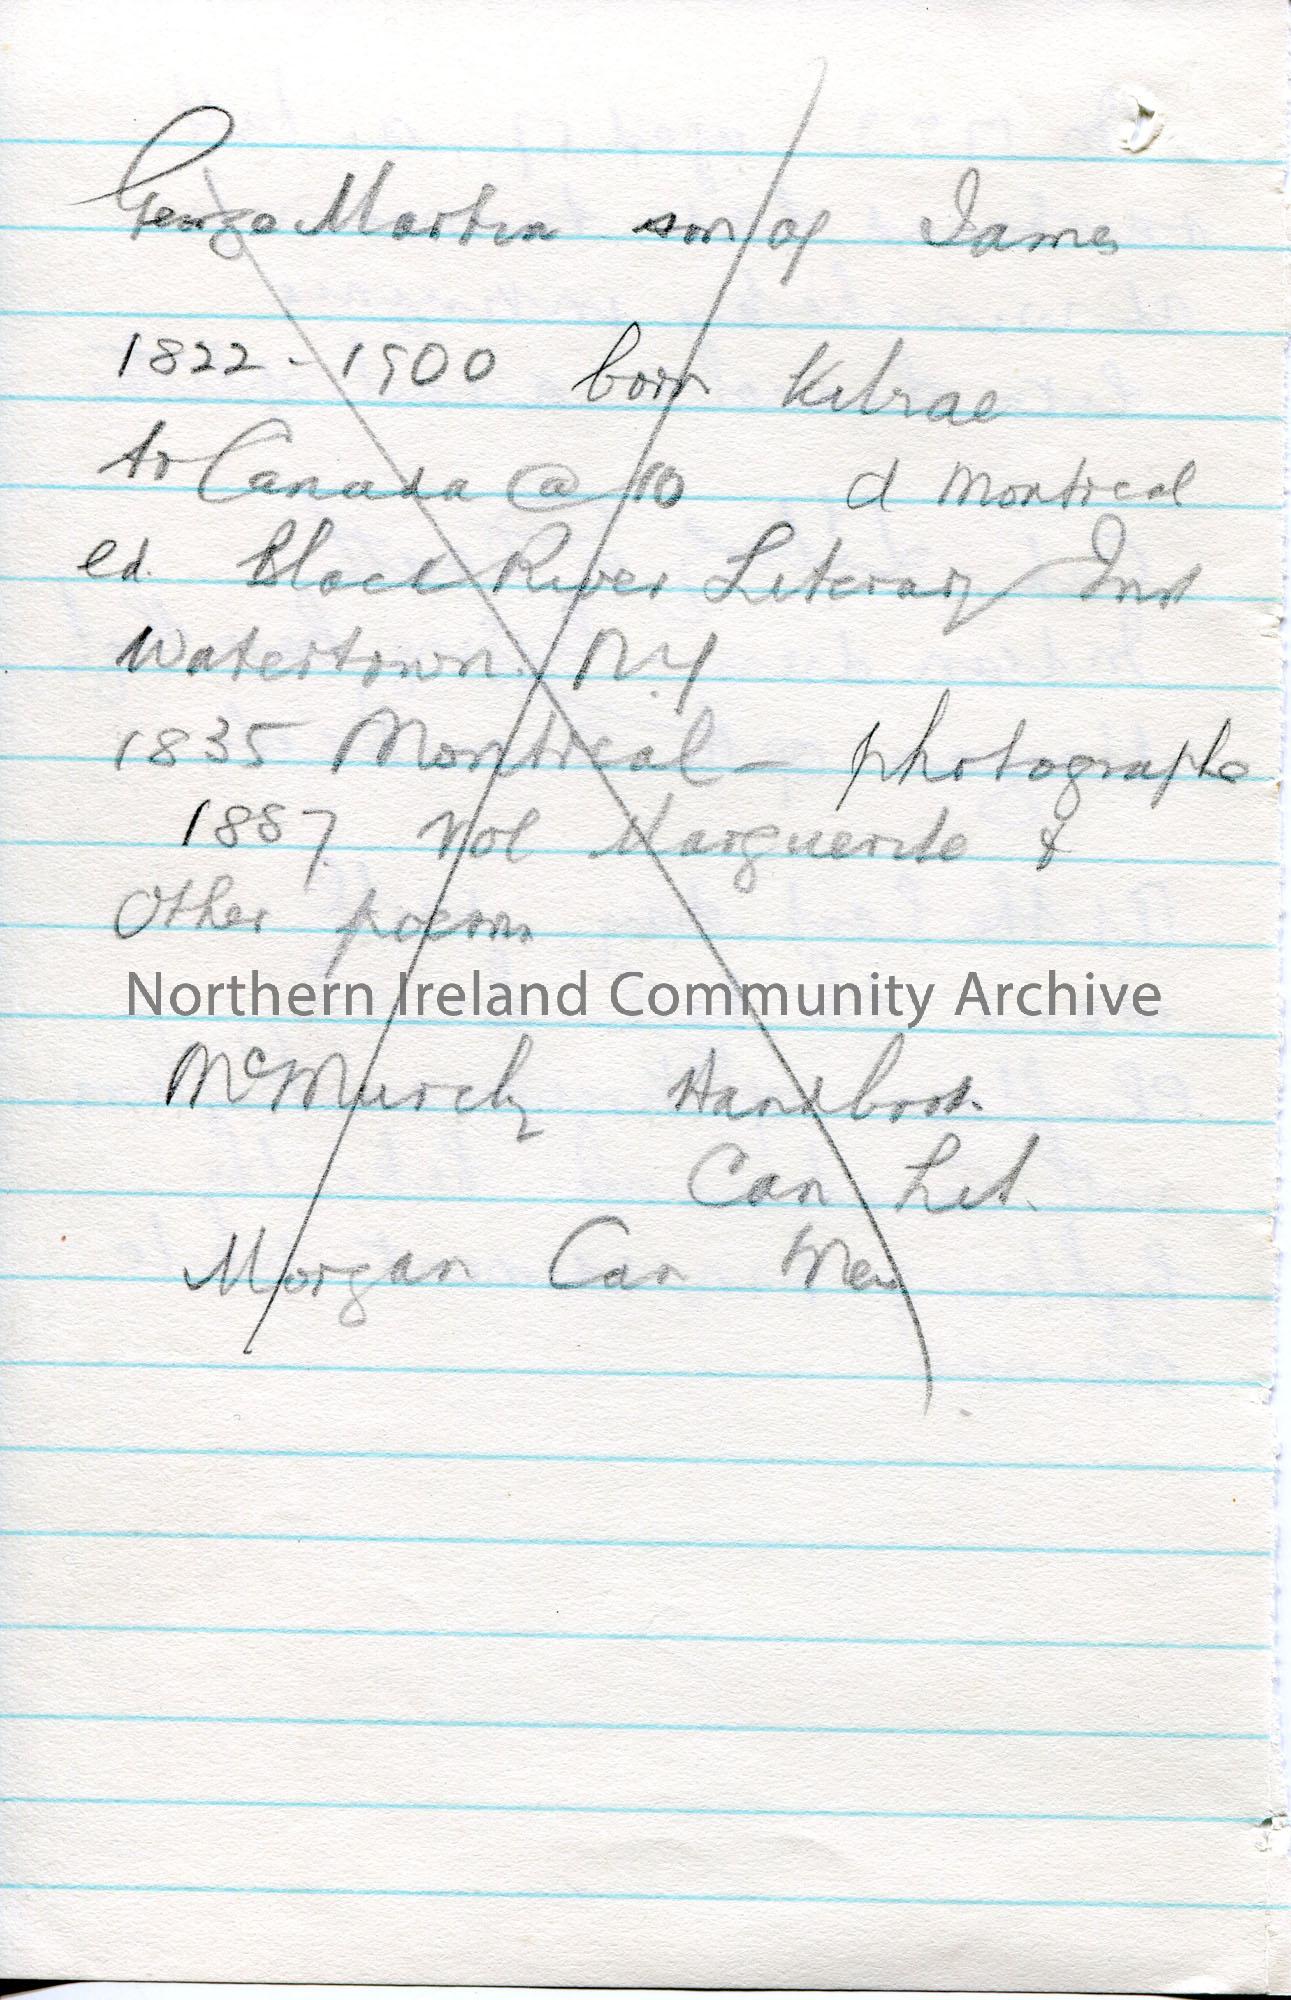 George Martin son of James
1822 - 1900 born Kilrae
to Canada @ 10 d Montreal
ed. Black River Literary Inst
Watertown. N.Y
1835 Montreal - photographe
1887 vol Marguerite &
Other poems
Northern Ireland Community Archive
McMurchy Handbook
Can Lit.
Morgan Can Men